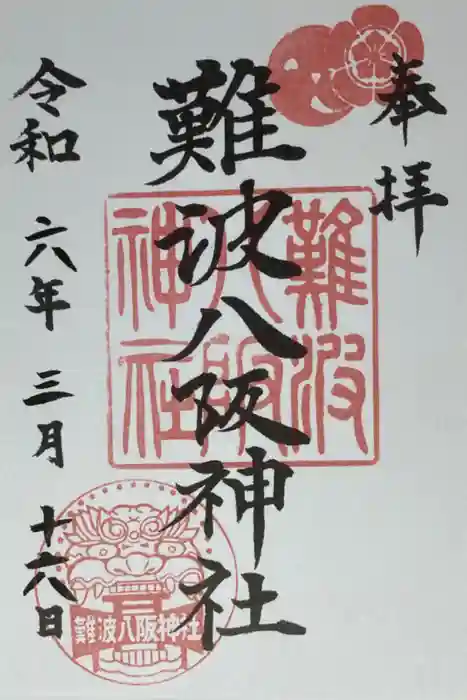 奉拝
難波八阪神社
令和 六年 三月 十六日
難波
八阪
神社
難波八阪神社